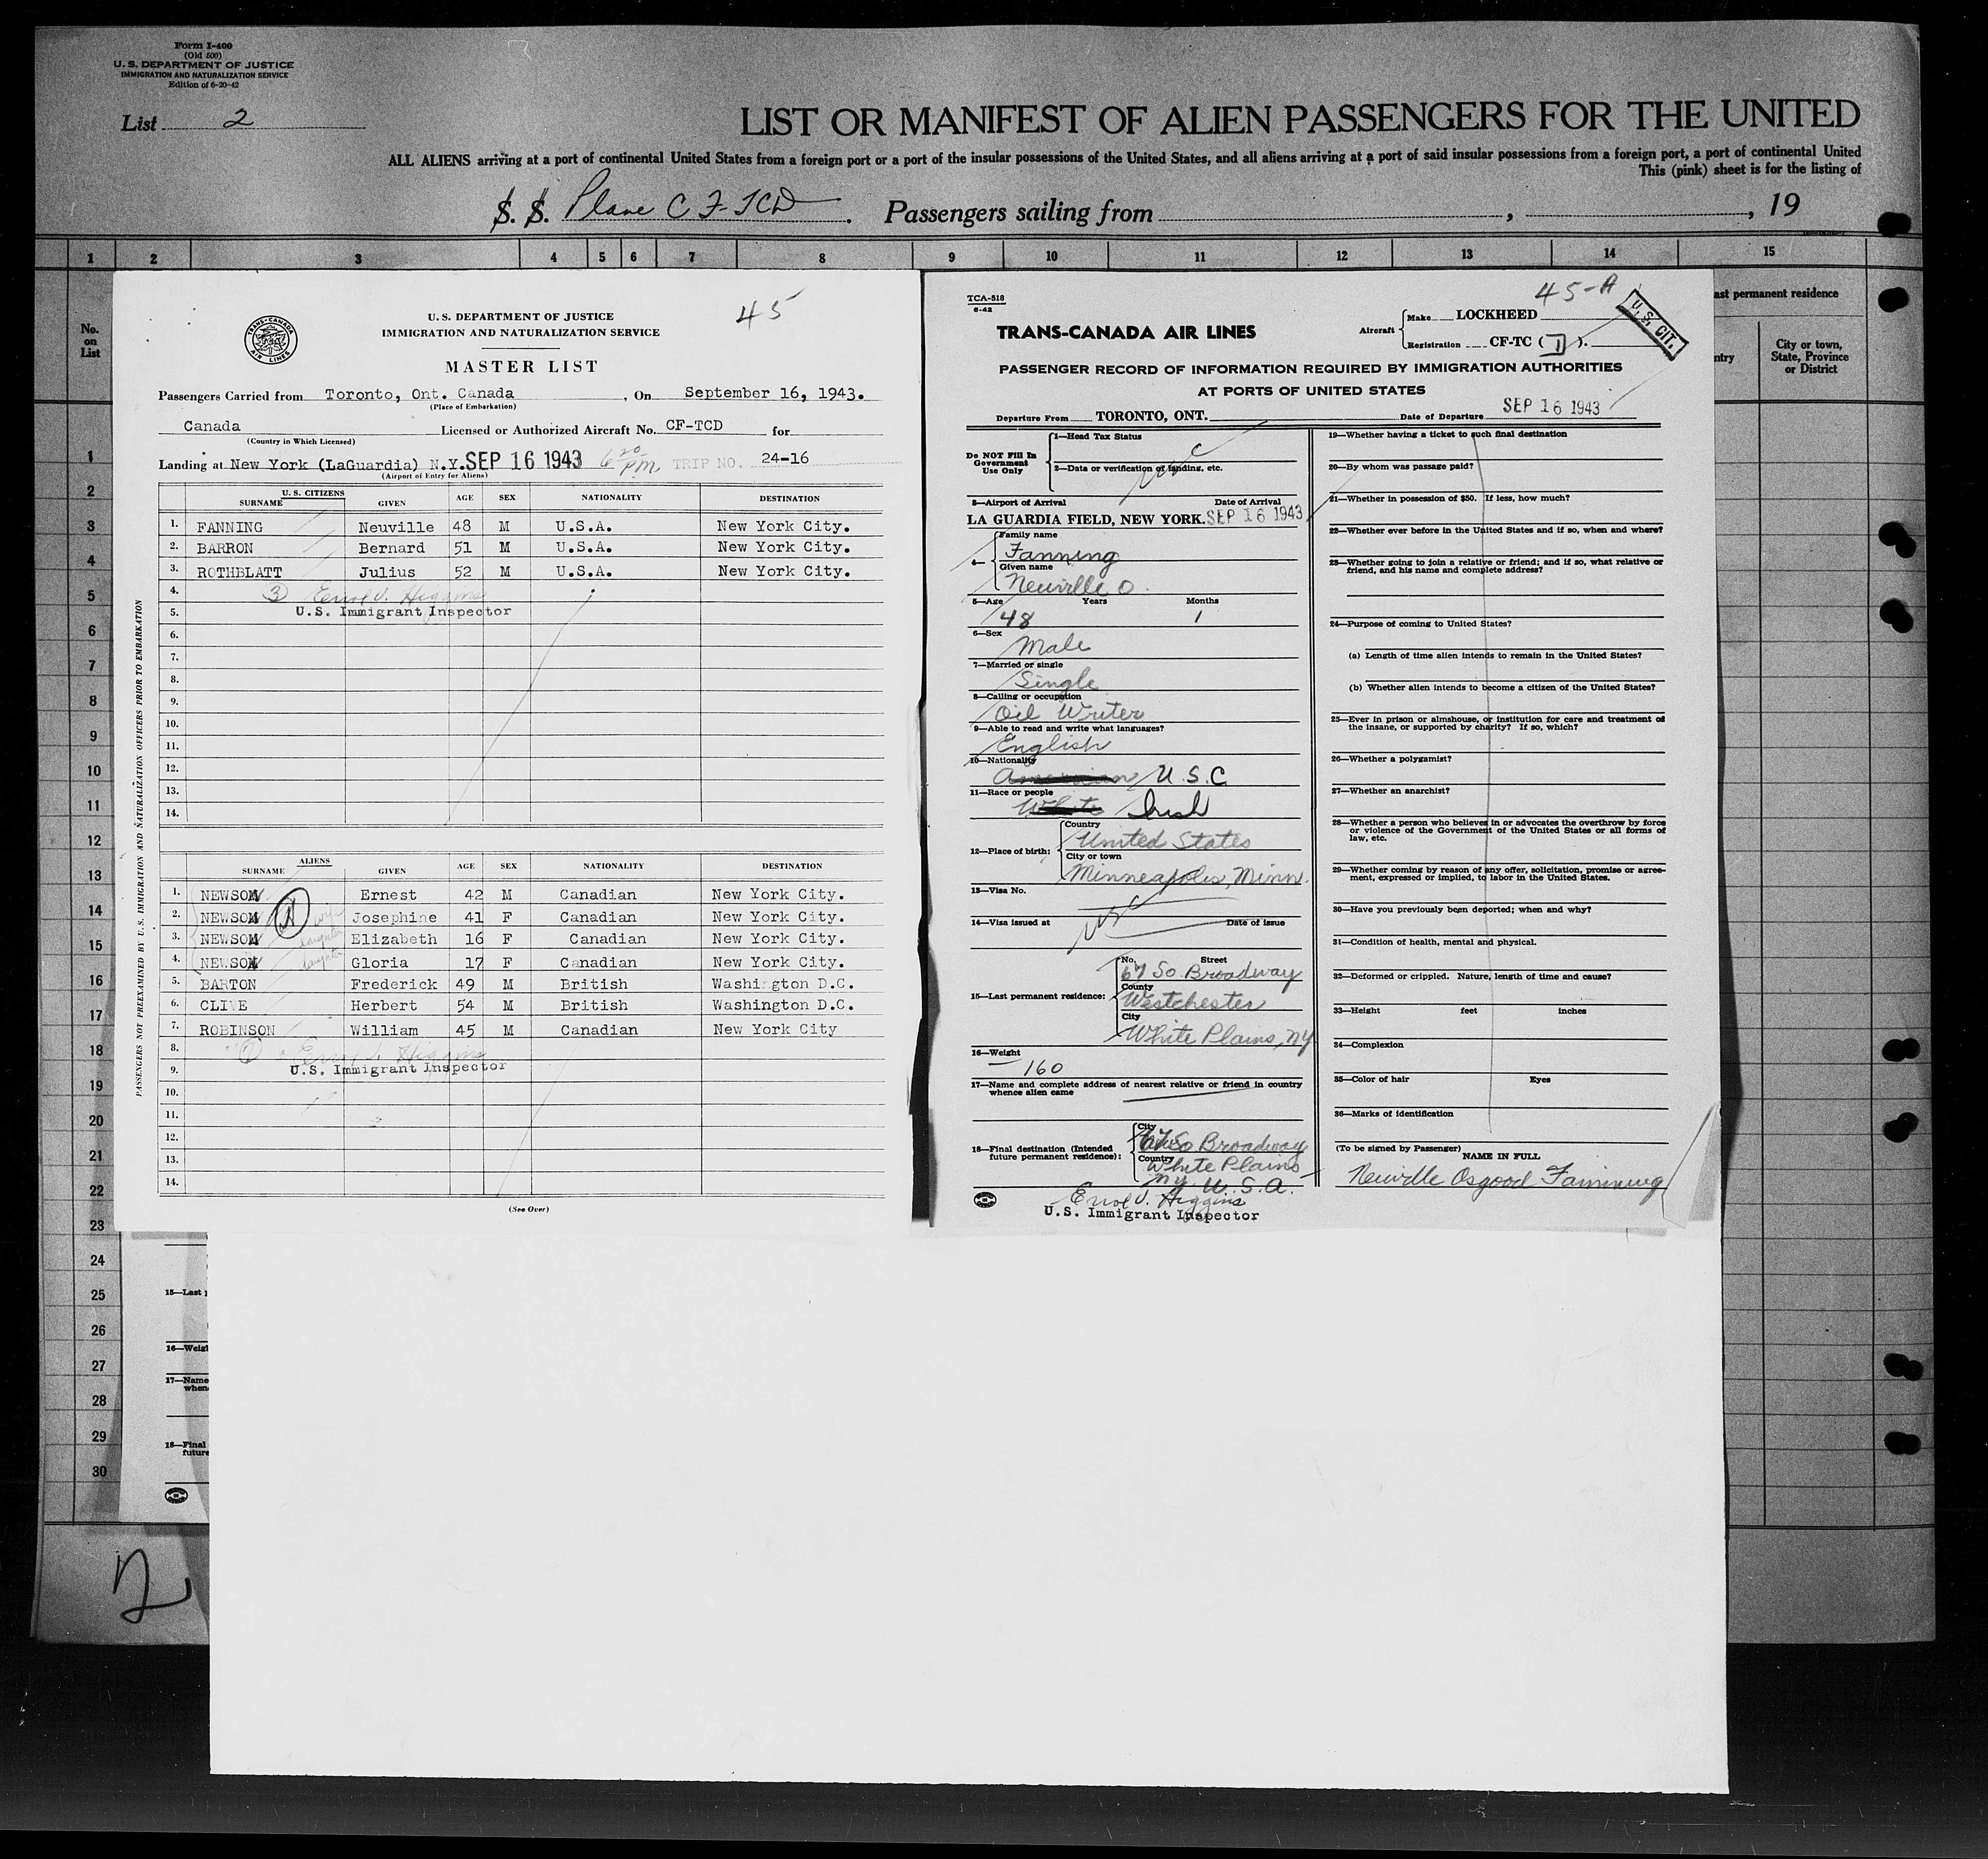 Form I-400
(Old 500)
U. S. DEPARTMENT OF JUSTICE
IMMIGRATION AND NATURALIZATION SERVICE
Edition of 6-20-42
List 2
LIST OR MANIFEST OF ALIEN PASSENGERS FOR THE UNITED
ALL ALIENS arriving at a port of continental United States from a foreign port or a port of the insular possessions of the United States, and all aliens arriving at a port of said insular possessions from a foreign port, a port of continental United
This (pink) sheet is for the listing of
S. S. Plane CF-TCD. Passengers sailing from , , 19
1 2 3 4 5 6 7 8 9 10 11 12 13 14 15
No.
on
List
ast permanent residence
ntry
City or town,
State, Province
or District
1
2
3
4
5
6
7
8
9
10
11
12
13
14
15
16
17
18
19
20
21
22
23
24
25
26
27
28
29
30
45
TRANS-CANADA AIR LINES
U. S. DEPARTMENT OF JUSTICE
IMMIGRATION AND NATURALIZATION SERVICE
MASTER LIST
Passengers Carried from Toronto, Ont. Canada, On September 16, 1943.
(Place of Embarkation)
Canada Licensed or Authorized Aircraft No. CF-TCD for
(Country in Which Licensed)
Landing at New York (LaGuardia) N.Y. SEP 16 1943 6 20 PM TRIP NO. 24-16
(Airport of Entry for Aliens)
U. S. CITIZENS
SURNAME GIVEN AGE SEX NATIONALITY DESTINATION
1. FANNING Neuville 48 M U.S.A. New York City.
2. BARRON Bernard 51 M U.S.A. New York City.
3. ROTHBLATT Julius 52 M U.S.A. New York City.
4. (3) Errol J. Higgins
5. U.S. Immigrant Inspector
6.
7.
8.
9.
10.
11.
12.
13.
14.
ALIENS
SURNAME GIVEN AGE SEX NATIONALITY DESTINATION
1. NEWSON Ernest 42 M Canadian New York City.
2. NEWSON Josephine 41 F Canadian New York City.
3. NEWSON daughter Elizabeth 16 F Canadian New York City.
4. NEWSON daughter Gloria 17 F Canadian New York City.
5. BARTON Frederick 49 M British Washington D.C.
6. CLIVE Herbert 54 M British Washington D.C.
7. ROBINSON William 45 M Canadian New York City
8. Errol J. Higgins
9. U.S. Immigrant Inspector
10.
11.
12.
13.
14.
(See Over)
PASSENGERS NOT PREEXAMINED BY U. S. IMMIGRATION AND NATURALIZATION OFFICERS PRIOR TO EMBARKATION
15—Last
16—Weig
17—Name
when
18—Final
future
2
TCA-518
6-42
45-A
U. S. CIT.
TRANS-CANADA AIR LINES
Aircraft
Make LOCKHEED
Registration CF-TC ( D ).
PASSENGER RECORD OF INFORMATION REQUIRED BY IMMIGRATION AUTHORITIES
AT PORTS OF UNITED STATES
Departure From TORONTO, ONT. Date of Departure SEP 16 1943
Do NOT Fill In
Government
Use Only
1—Head Tax Status
2—Data or verification of landing, etc.
USC
3—Airport of Arrival Date of Arrival
LA GUARDIA FIELD, NEW YORK. SEP 16 1943
4—
Family name
Fanning
Given name
Neuville O.
5—Age Years Months
48 1
6—Sex
Male
7—Married or single
Single
8—Calling or occupation
Oil Writer
9—Able to read and write what languages?
English
10—Nationality
American U.S.C
11—Race or people
White Irish
12—Place of birth:
Country
United States
City or town
Minneapolis, Minn.
13—Visa No.
14—Visa issued at Date of issue
USC
15—Last permanent residence:
No. Street
67 So Broadway
County
Westchester
City
White Plains, NY
16—Weight
160
17—Name and complete address of nearest relative or friend in country
whence alien came
18—Final destination (Intended
future permanent residence):
City
67 So Broadway
Country
White Plains
N.Y. U.S.A.
Errol J. Higgins
U.S. Immigrant Inspector
19—Whether having a ticket to such final destination
20—By whom was passage paid?
21—Whether in possession of $50. If less, how much?
22—Whether ever before in the United States and if so, when and where?
23—Whether going to join a relative or friend; and if so, what relative or
friend, and his name and complete address?
24—Purpose of coming to United States?
(a) Length of time alien intends to remain in the United States?
(b) Whether alien intends to become a citizen of the United States?
25—Ever in prison or almshouse, or institution for care and treatment of
the insane, or supported by charity? If so, which?
26—Whether a polygamist?
27—Whether an anarchist?
28—Whether a person who believes in or advocates the overthrow by force
or violence of the Government of the United States or all forms of
law, etc.
29—Whether coming by reason of any offer, solicitation, promise or agree-
ment, expressed or implied, to labor in the United States.
30—Have you previously been deported; when and why?
31—Condition of health, mental and physical.
32—Deformed or crippled. Nature, length of time and cause?
33—Height feet inches
34—Complexion
35—Color of hair Eyes
36—Marks of identification
(To be signed by Passenger)
NAME IN FULL
Neuville Osgood Fanning